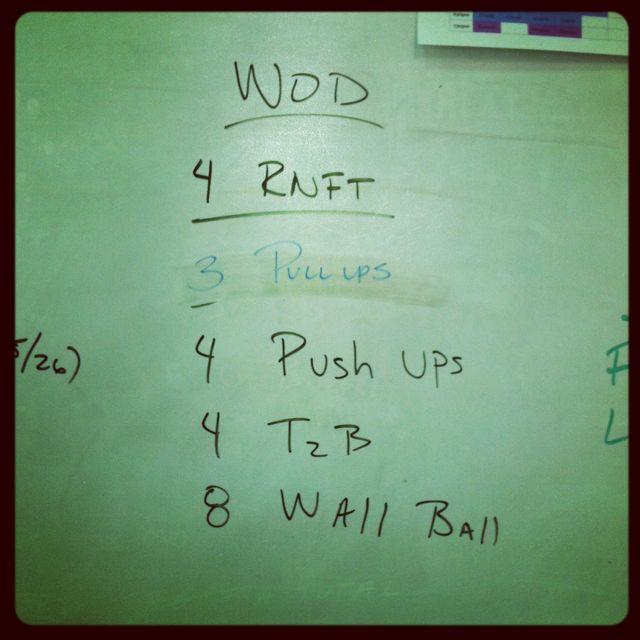 WOD
4 RNFT
3 Pull ups
4 Push ups
4 T2B
8 Wall Ball
5/26)
F
L